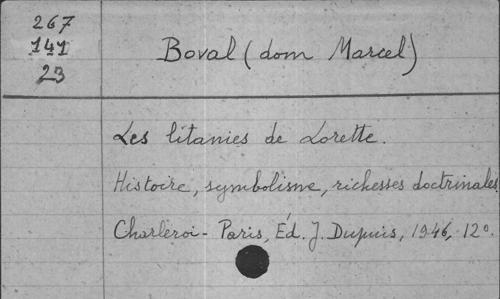 267
141
23
Boval (dom Marcel)
Les litanies de Lorette.
Histoire, symbolisme, richesses doctrinales.
Charleroi - Paris, Éd. J. Dupuis, 1946, 12°.